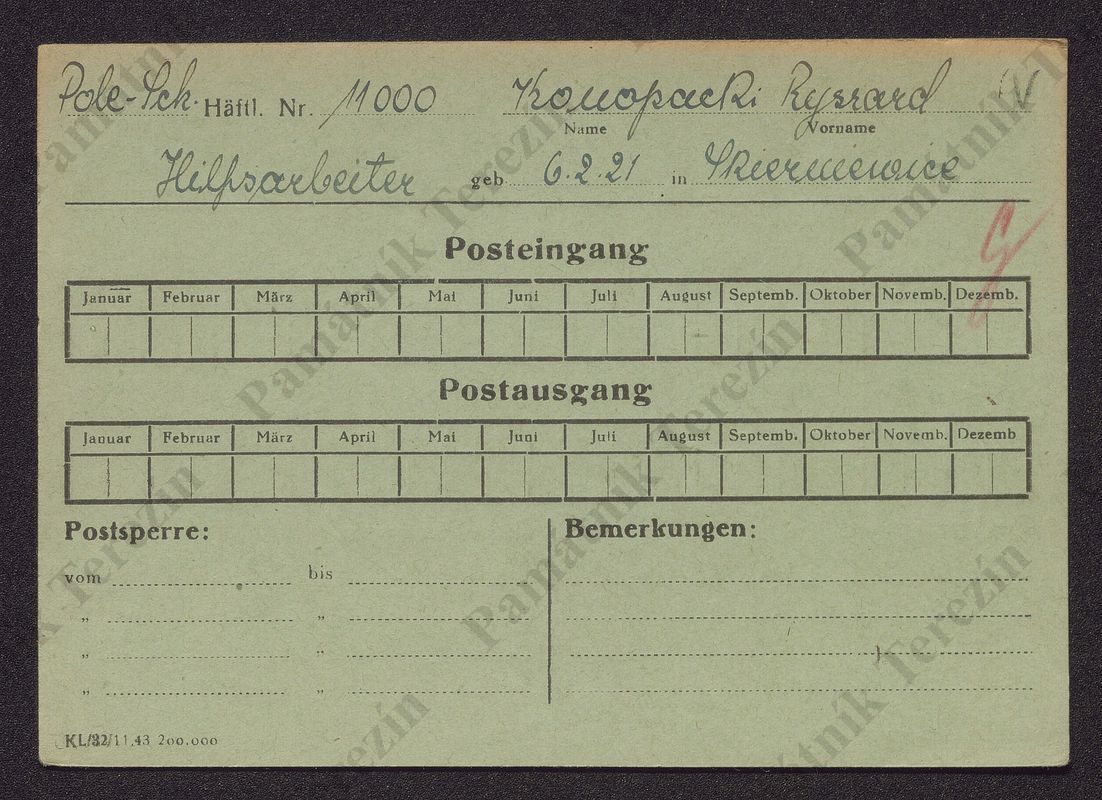 Pole-Sck. Häftl. Nr. 11000 Konopacki Ryszard
Name Vorname
Hilfsarbeiter geb 6.2.21 in Skierniewice
Posteingang
Januar Februar März April Mai Juni Juli August Septemb. Oktober Novemb. Dezemb.
Postausgang
Januar Februar März April Mai Juni Juli August Septemb. Oktober Novemb. Dezemb
Postsperre: Bemerkungen:
vom bis
„ „
„ „
„ „
KL/32/11.43 200.000
Památník Terezín